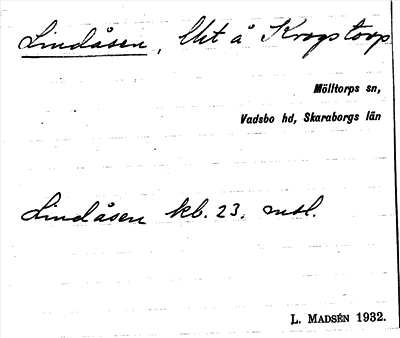 Lindåsen, Utt å Krogstorp
Mölltorps sn,
Vadsbo hd, Skaraborgs län
Lindåsen kb. 23. mtl.
L. MADSÉN 1932.